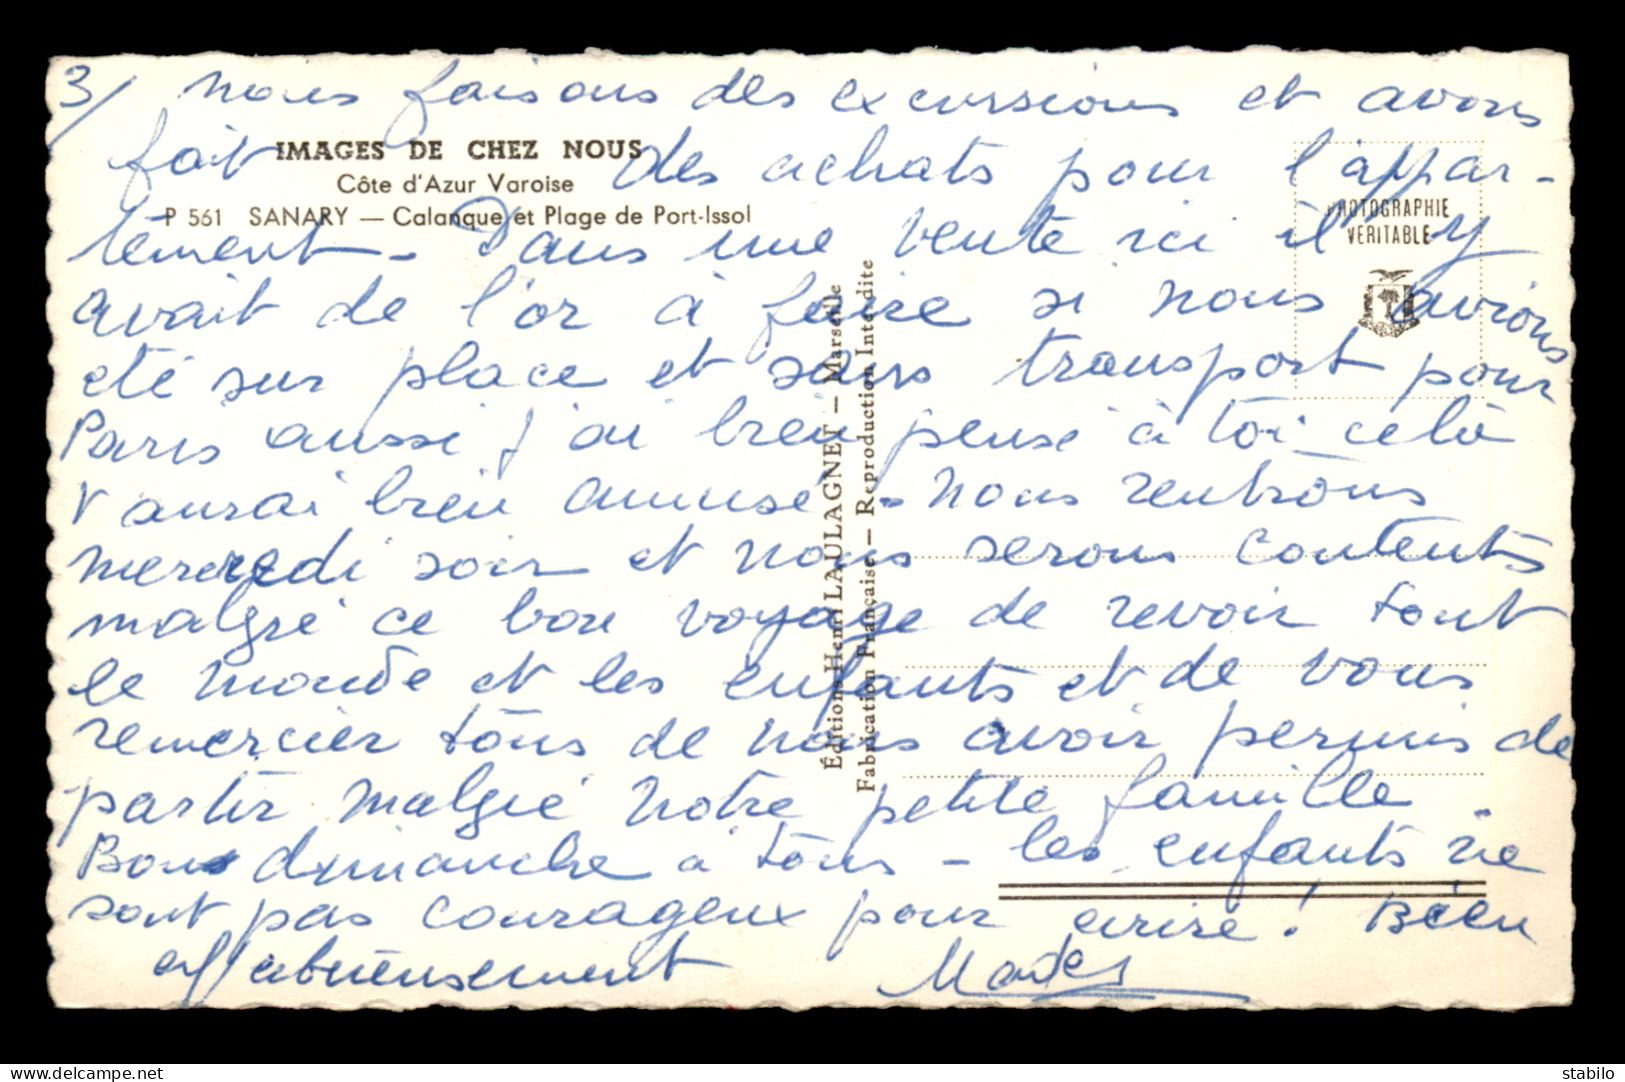 3/ nous faisons des excursions et avons
fait des achats pour l'appar-
IMAGES DE CHEZ NOUS
Côte d'Azur Varoise
P 561 SANARY — Calanque et Plage de Port-Issol
PHOTOGRAPHIE
VERITABLE
tement - Dans une vente ici il y
avait de l'or à faire si nous avions
eté sur place et sans transport pour
Paris aussi j'ai bien pensé à toi celà
t'aurai bien amusé - nous rentrons
mercredi soir et nous serons contents
malgré ce bon voyage de revoir tout
le monde et les enfants et de vous
remercier tous de nous avoir permis de
partir malgré notre petite famille.
Bon dimanche à tous - les enfants ne
sont pas courageux pour écrire ! Bien
affectueusement
Éditions Henri LAULAGNET — Marseille
Fabrication Française — Reproduction Interdite
stabilo